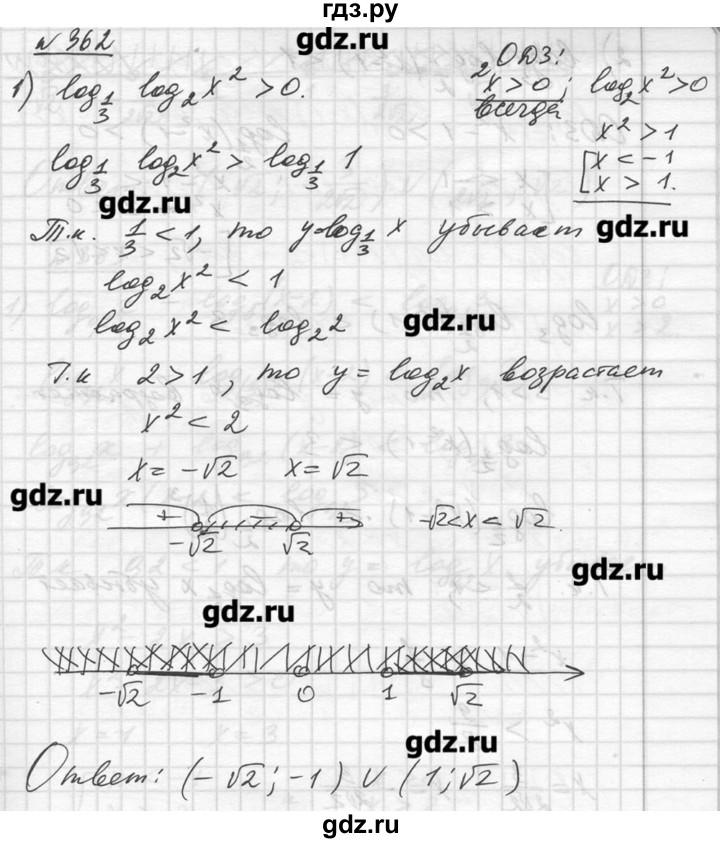 гдз.ру
№ 362
gdz.ru
1) log_{1/3} log_2 x^2 > 0.
ОДЗ:
x^2 > 0; log_2 x^2 > 0
всегда
x^2 > 1
log_{1/3} log_2 x^2 > log_{1/3} 1
[ x < -1
[ x > 1.
gdz.ru
Т.к. 1/3 < 1, то y = log_{1/3} x убывает
gdz.ru
log_2 x^2 < 1
log_2 x^2 < log_2 2
gdz.ru
Т.к 2 > 1, то y = log_2 x возрастает
x^2 < 2
x = -√2 x = √2
gdz.ru
+ - +
-√2 √2
-√2 < x < √2.
gdz.ru
gdz.ru
-√2 -1 0 1 √2
gdz.ru
Ответ: (-√2; -1) ∪ (1; √2)
gdz.ru